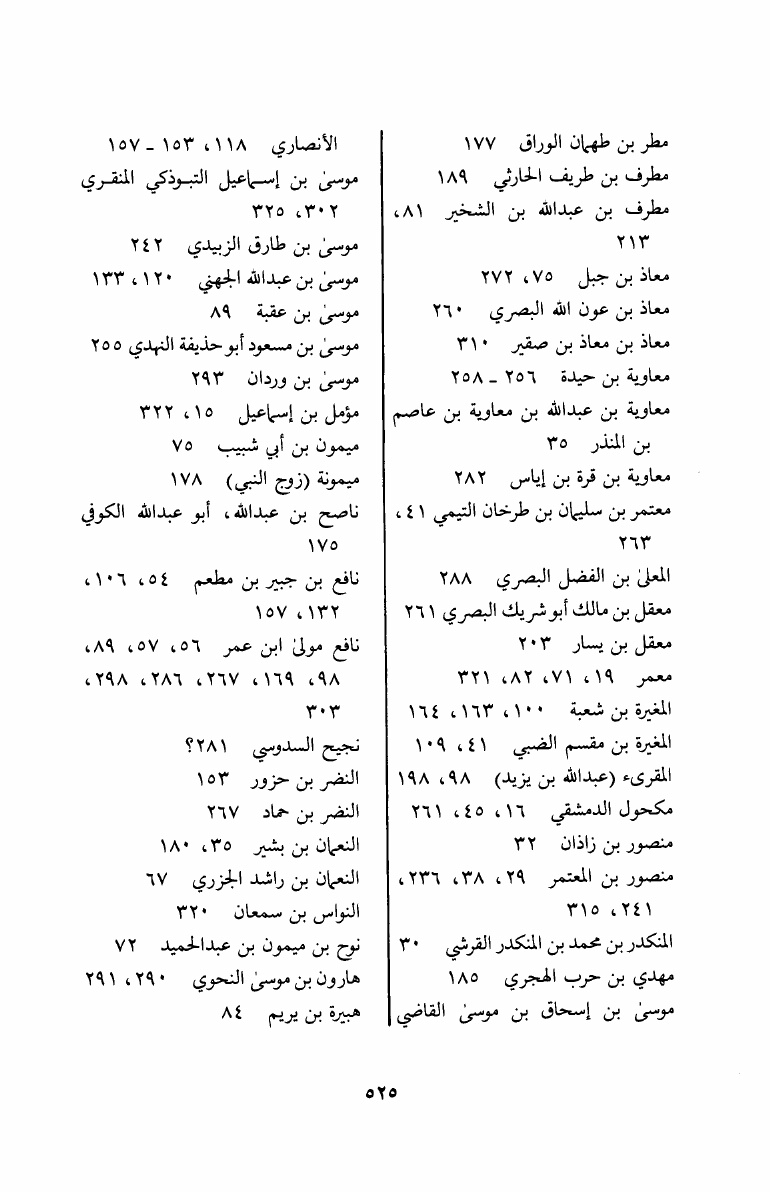 مطر بن طهمان الوراق ١٧٧
مطرف بن طريف الحارثي ١٨٩
مطرف بن عبدالله بن الشخير ٨١،
٢١٣
معاذ بن جبل ٧٥، ٢٧٢
معاذ بن عون الله البصري ٢٦٠
معاذ بن معاذ بن صقير ٣١٠
معاوية بن حيدة ٢٥٦ ـ ٢٥٨
معاوية بن عبدالله بن معاوية بن عاصم
بن المنذر ٣٥
معاوية بن قرة بن إياس ٢٨٢
معتمر بن سليمان بن طرخان التيمي ٤١،
٢٦٣
المعلىٰ بن الفضل البصري ٢٨٨
معقل بن مالك أبو شريك البصري ٢٦١
معقل بن يسار ٢٠٣
معمر ١٩، ٧١، ٨٢، ٣٢١
المغيرة بن شعبة ١٠٠، ١٦٣، ١٦٤
المغيرة بن مقسم الضبي ٤١، ١٠٩
المقرىء (عبدالله بن يزيد) ٩٨، ١٩٨
مكحول الدمشقي ١٦، ٤٥، ٢٦١
منصور بن زاذان ٣٢
منصور بن المعتمر ٢٩، ٣٨، ٢٣٦،
٢٤١، ٣١٥
المنكدر بن محمد بن المنكدر القرشي ٣٠
مهدي بن حرب الهجري ١٨٥
موسىٰ بن إسحاق بن موسىٰ القاضي
الأنصاري ١١٨، ١٥٣ ـ ١٥٧
موسىٰ بن إسماعيل التبوذكي المنقري
٣٠٢، ٣٢٥
موسىٰ بن طارق الزبيدي ٢٤٢
موسىٰ بن عبدالله الجهني ١٢٠، ١٣٣
موسىٰ بن عقبة ٨٩
موسىٰ بن مسعود أبو حذيفة النهدي ٢٥٥
موسىٰ بن وردان ٢٩٣
مؤمل بن إسماعيل ١٥، ٣٢٢
ميمون بن أبي شبيب ٧٥
ميمونة (زوج النبي) ١٧٨
ناصح بن عبدالله، أبو عبدالله الكوفي
١٧٥
نافع بن جبير بن مطعم ٥٤، ١٠٦،
١٣٢، ١٥٧
نافع مولىٰ ابن عمر ٥٦، ٥٧، ٨٩،
٩٨، ١٦٩، ٢٦٧، ٢٨٦، ٢٩٨،
٣٠٣
نجيح السدوسي ٢٨١؟
النضر بن حزور ١٥٣
النضر بن حماد ٢٦٧
النعمان بن بشير ٣٥، ١٨٠
النعمان بن راشد الجزري ٦٧
النواس بن سمعان ٣٢٠
نوح بن ميمون بن عبدالحميد ٧٢
هارون بن موسىٰ النحوي ٢٩٠، ٢٩١
هبيرة بن يريم ٨٤
٥٢٥